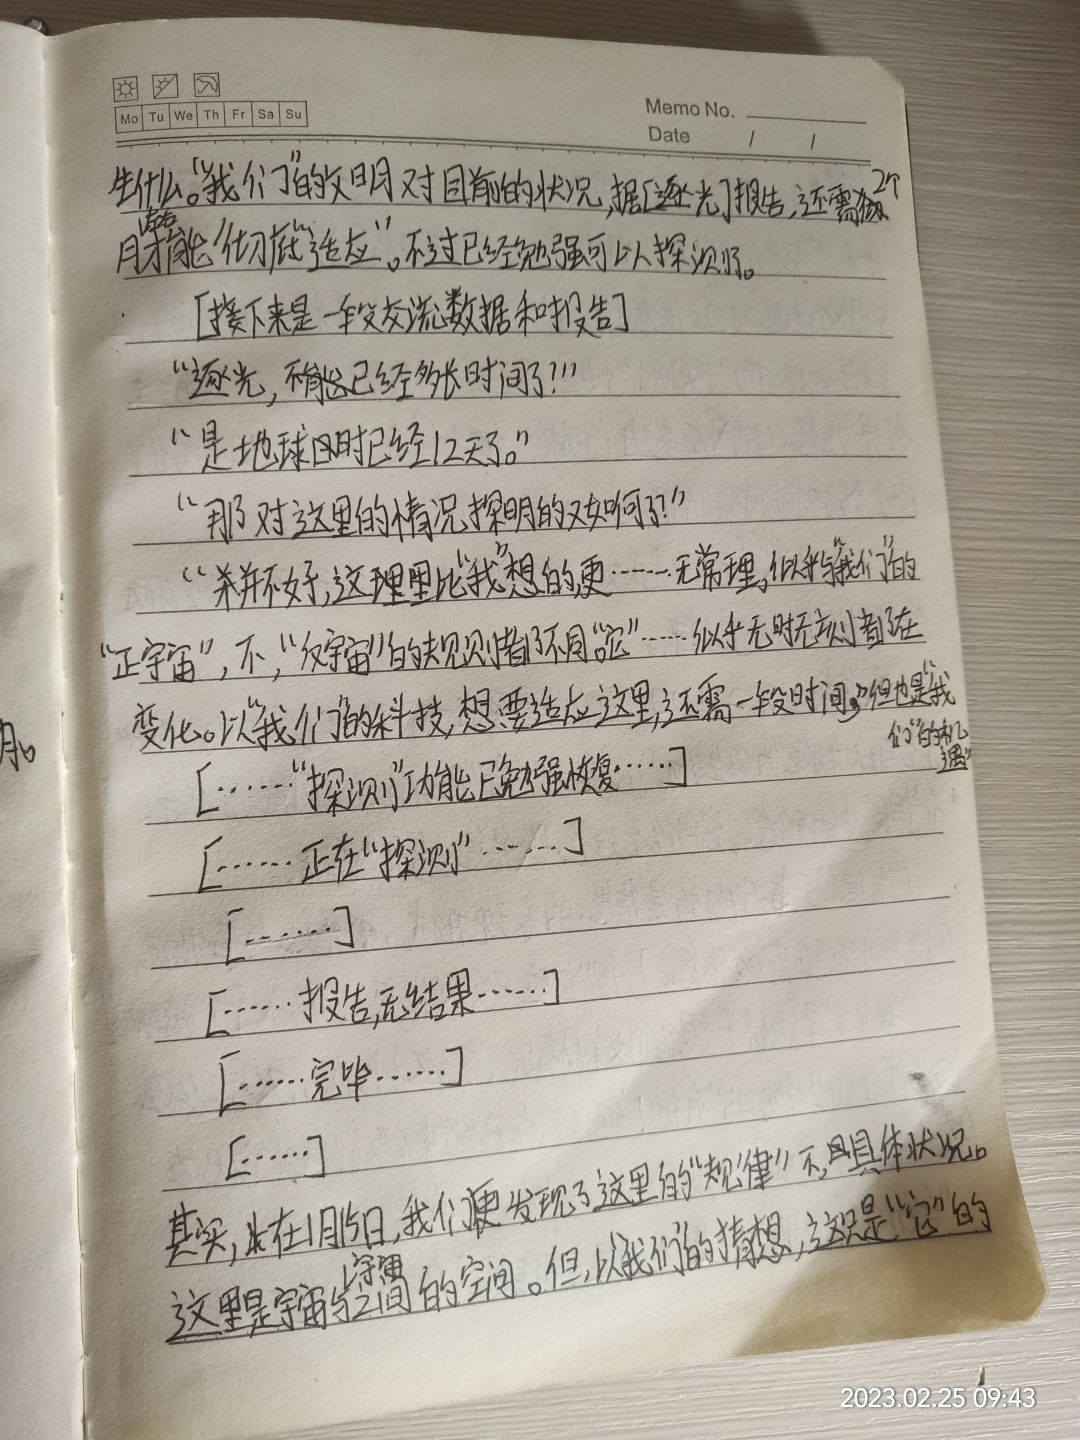 Mo Tu We Th Fr Sa Su
Memo No.
Date / /
生什么。“我们”的文明对目前的状况,据[逐光]报告,还需2个
月左右才能“彻底”“适应”。不过已经勉强可以探测了。
[接下来是一段交流数据和报告]
“逐光,已经多长时间了?”
“是地球时已经12天了。”
“那对这里的情况探明的如何了?”
“并不好,这里比“我”想的,更……无常理,似乎与“我们”的
“正宇宙”,不,“反宇宙”的规则都不同。“它”……似乎无时无刻都在
变化。以“我们”的科技,想要适应这里,还需一段时间,但也是“我
们”的机
遇”
[……“探测”功能已勉强恢复……]
[……正在“探测”……]
[……]
[……报告,无结果……]
[……完毕……]
[……]
其实,在1月15日,我们便发现了这里的“规律”不,具体状况。
这里是宇宙与宇宙之间的空间。但,以“我们”的猜想,这只是“它”的
月。
2023.02.25 09:43